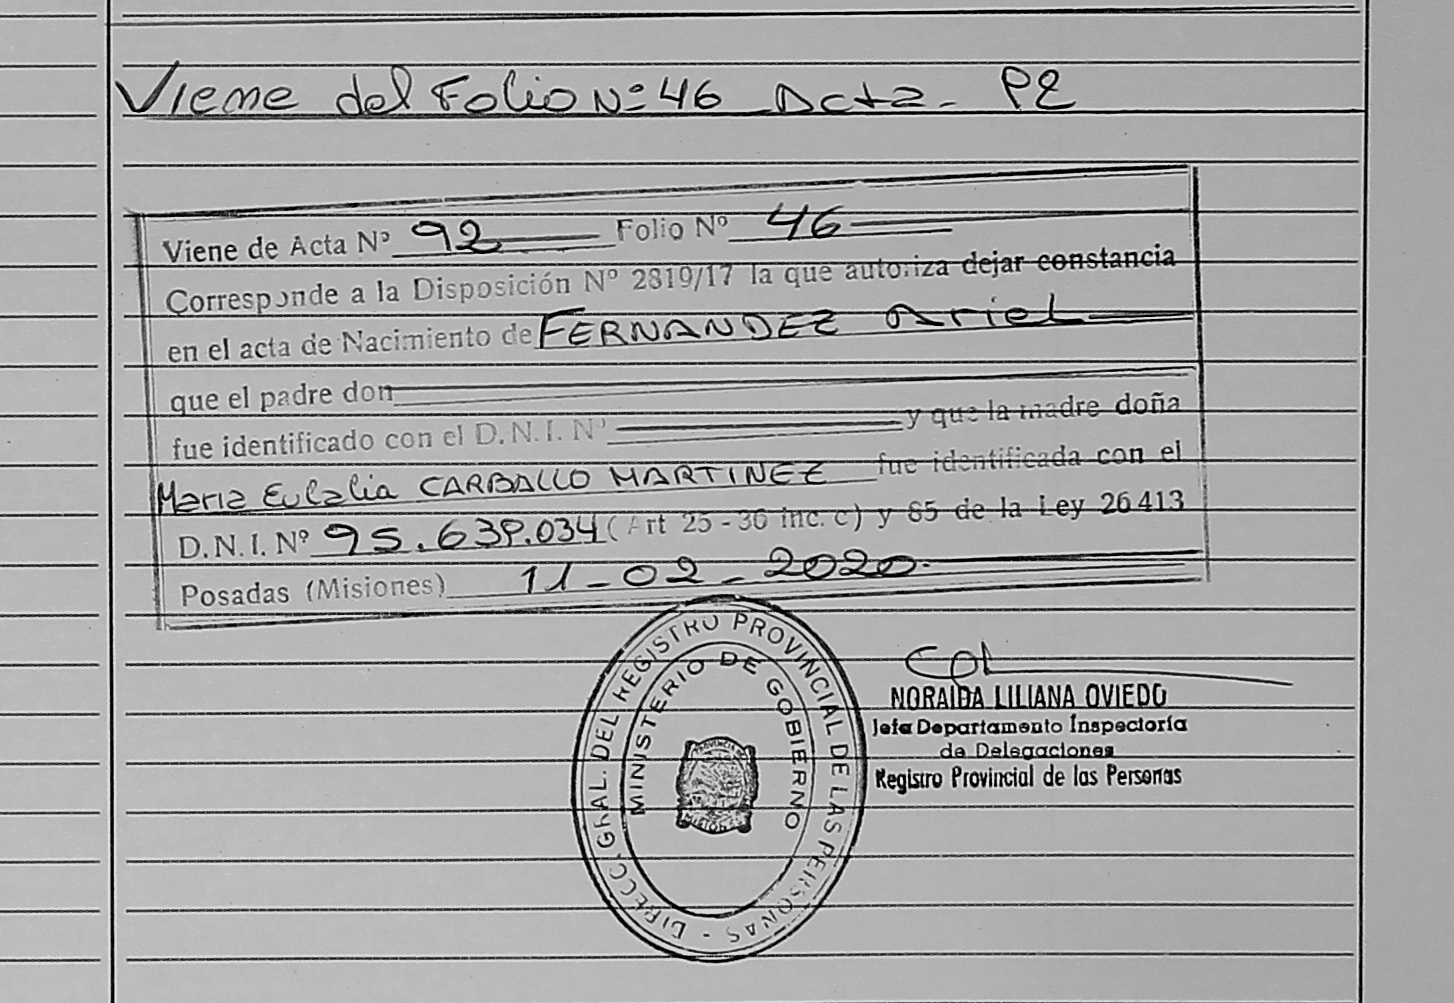 Viene del Folio Nº 46 Acta - 92
Viene de Acta Nº 92 Folio Nº 46
Corresponde a la Disposición Nº 2819/17 la que autoriza dejar constancia
en el acta de Nacimiento de FERNANDEZ Ariel
que el padre don
fue identificado con el D.N.I. Nº y que la madre doña
Maria Eulalia CARBALLO MARTINEZ fue identificada con el
D.N.I. Nº 95.639.034 (Art 25 - 36 inc. c) y 85 de la Ley 26413
Posadas (Misiones) 11-02-2020.
DIRECC. GRAL. DEL REGISTRO PROVINCIAL DE LAS PERSONAS -
MINISTERIO DE GOBIERNO
PROVINCIA DE
MISIONES
NORAIDA LILIANA OVIEDO
Jefa Departamento Inspectoría
de Delegaciones
Registro Provincial de las Personas